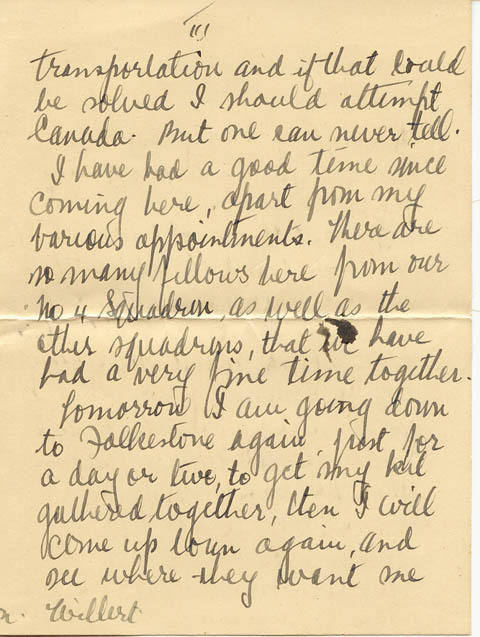 III
transportation and if that could
be solved I should attempt
Canada. But one can never tell.
I have had a good time since
coming here, apart from my
various appointments. There are
so many fellows here from our
No 4 Squadron, as well as the
other squadrons, that we have
had a very fine time together.
Tomorrow I am going down
to Folkestone again just for
a day or two, to get my kit
gathered together, then I will
come up town again, and
see where they want me
Willert